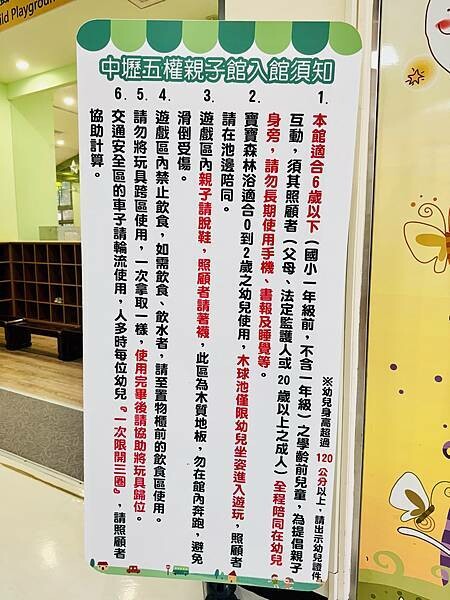 ild Playground
中壢五權親子館入館須知
※幼兒身高超過 120 公分以上，請出示幼兒證件
1. 本館適合6歲以下（國小一年級前，不含一年級）之學齡前兒童，為提倡親子
互動，須其照顧者（父母、法定監護人或 20 歲以上之成人）全程陪同在幼兒
身旁，請勿長期使用手機、書報及睡覺等。
2. 寶寶森林浴適合0到2歲之幼兒使用，木球池僅限幼兒坐姿進入遊玩，照顧者
請在池邊陪同。
3. 遊戲區內親子請脫鞋，照顧者請著襪，此區為木質地板，勿在館內奔跑，避免
滑倒受傷。
4. 遊戲區內禁止飲食，如需飲食、飲水者，請至置物櫃前的飲食區使用。
5. 請勿將玩具跨區使用，一次拿取一樣，使用完畢後請協助將玩具歸位。
6. 交通安全區的車子請輪流使用，人多時每位幼兒『一次限開三圈』，請照顧者
協助計算。